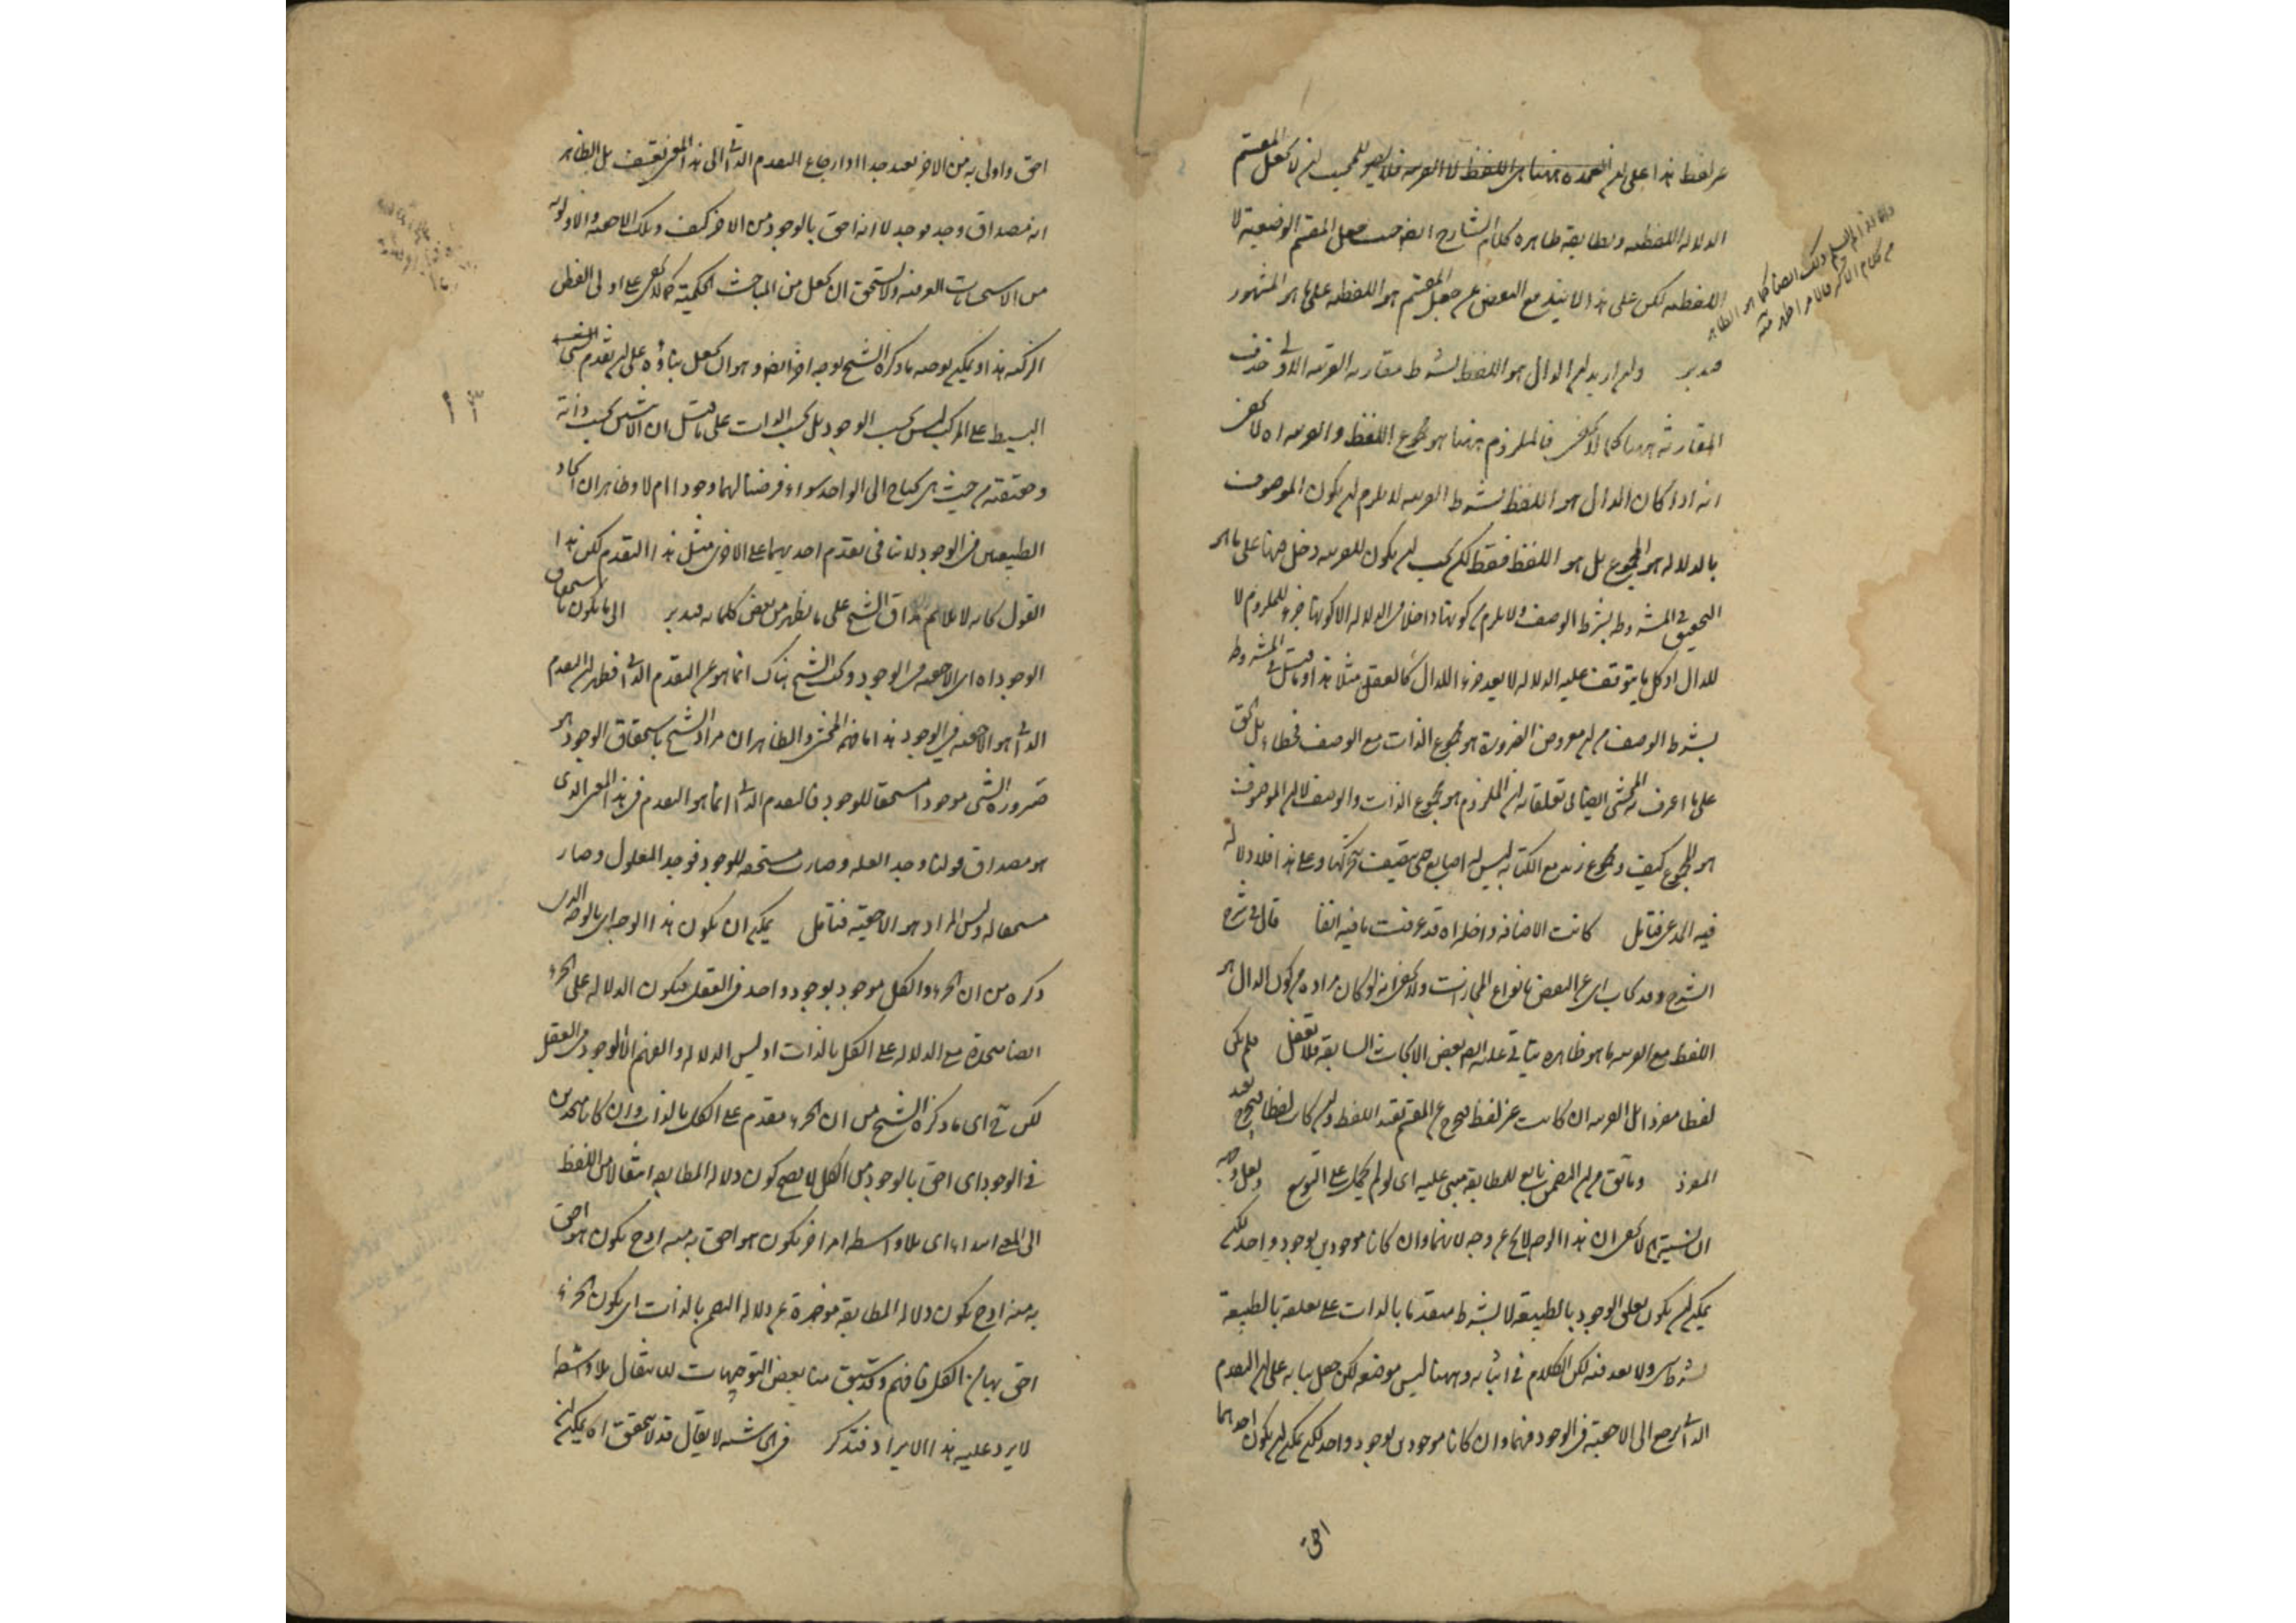 عن لفظ هذا على ان العمدة ههنا هي اللفظ لا القرينة فلا يصير للمجيب ان لا يجعل المقسم
الدلالة اللفظية ومطابقة ظاهرة كلام الشارح ايضا حيث جعل المقسم الوضعية لا
اللفظية لكن على هذا لا يتم مع البعض جعل المقسم هو اللفظية على ما هو المشهور
فتدبر ولو اريد ان الدال هو اللفظ بشرط مقارنة القرينة الاولى حذف
المقارنة ههنا كما لا يخفى فالملزوم ههنا هو مجموع اللفظ والقرينة اه لا يخفى
انه اذا كان الدال هو اللفظ بشرط القرينة لا يلزم ان يكون الموصوف
بالدلالة هو المجموع بل هو اللفظ فقط لكن يجب ان يكون للقرينة دخل ههنا على ما هو
التحقيق في المشروطة بشرط الوصف ولا يلزم من كونها داخلا في الدلالة الا كونها جزء للملزوم لا
للدال اذ كل ما يتوقف عليه الدلالة لا يعد جزء للدال كالعقل مثلا هذا وما قيل في المشروطة
بشرط الوصف من ان معروض الضرورة هو مجموع الذات مع الوصف فخطاء بل الحق
على ما اعترف به المحشي ايضا في تعلقاته ان الملزوم هو مجموع الذات والوصف لا ان الموصوف
هو المجموع كيف ومجموع زيد مع الكتابة ليس له اصابع حتى يتصف بتحركها وعلى هذا فلا دلالة
فيه المدعى فتامل كانت الاضافة داخلة اه قد عرفت ما فيه انفا قال في شرح
الشرح وقد يجاب اي عن البعض بانواع المجازات ولا يخفى انه لو كان مراده من كون الدال هو
اللفظ مع القرينة ما هو ظاهره يتأتى عليه ايضا بعض الابحاث السابقة فلا تغفل فلم يكن
لفظا مفردا بل القرينة ان كانت غير لفظ فيخرج عن المقسم بقيد اللفظ وان كان لفظا فيخرج بقيد
المفرد وما سبق من ان التضمن تابع للمطابقة مبني عليه اي لو لم يحمل على التوسع ولعل وجه
ان نسبته لا يخفى ان هذا الوجه لا يخ عن وجه لانهما وان كانا موجودين بوجود واحد لكن
يمكن ان يكون تعلق الوجود بالطبيعة لا بشرط متقدما بالذات على تعلقه بالطبيعة
بشرط شيء ولا بعد فيه لكن الكلام في اثباته وههنا ليس موضعه لكن جعل بنائه على ان التقدم
الذاتي يرجع الى الاحقية في الوجود فهما وان كانا موجودين بوجود واحد لكن يمكن ان يكون احدهما
احق
احق واولى به من الاخر بعيد جدا اذ ارجاع التقدم الذاتي الى هذا المعنى تعسف بل الظاهر
انه مصداق وجد فوجد لا انه احق بالوجود من الاخر كيف وتلك الاحقية والاولوية
من الاستحسانات العرفية ولا يستحق ان يجعل من المباحث الحكمية كما لا يخفى على اولى الفطن
الزكية هذا ويمكن توجيه ما ذكره الشيخ بوجه اخر ايضا وهو ان يجعل بناؤه على ان تقدم الشيء
البسيط على المركب ليس بحسب الوجود بل بحسب الذات على ما قيل ان الاثنين بحسب ذاته
وحقيقته من حيث هي يحتاج الى الواحد سواء فرضنا لهما وجودا ام لا وظاهر ان اتحاد
الطبيعتين في الوجود لا ينافي تقدم احديهما على الاخرى مثل هذا التقدم لكن هذا
القول كانه لا يلائم مذاق الشيخ على ما يظهر من بعض كلماته فتدبر الى ما يكون باستحقاق
الوجود اه اي الاحقية في الوجود وكلام الشيخ هناك انما هو عن التقدم الذاتي فظهر ان التقدم
الذاتي هو الاحقية في الوجود هذا ما فهمه المحشي والظاهر ان مراد الشيخ باستحقاق الوجود هو
ضرورة الشيء موجودا مستحقا للوجود فالتقدم الذاتي انما هو التقدم في هذا المعنى الذي
هو مصداق قولنا وجد العلة وصارت مستحقة للوجود فوجد المعلول وصار
مستحقا له وليس المراد هو الاحقية فتامل يمكن ان يكون هذا الوجه اي بالوجه الذي
ذكره من ان الجزء والكل موجود بوجود واحد في العقل فيكون الدلالة على الجزء
ايضا متحدة مع الدلالة على الكل بالذات اذ ليس الدلالة والفهم الا الوجود في العقل
لكن في اي ما ذكره الشيخ من ان الجزء مقدم على الكل بالذات وان كانا متحدين
في الوجود اي احق بالوجود من الكل لا يصح كون دلالة المطابقة انتقالا من اللفظ
الى المعنى ابتداء اي بلا واسطة امر اخر يكون هو احق به منه اذ ح يكون هو احق
به منه اذ ح يكون دلالة المطابقة مؤخرة عن دلالة التضمن بالذات اي يكون الجزء
احق بها من الكل فافهم وقد سبق منا بعض التوجيهات للانتقال بلا واسطة
لا يرد عليه هذا الايراد فتذكر في اي شيء لا يقال قد لا يتحقق اه يمكن ان
١٣